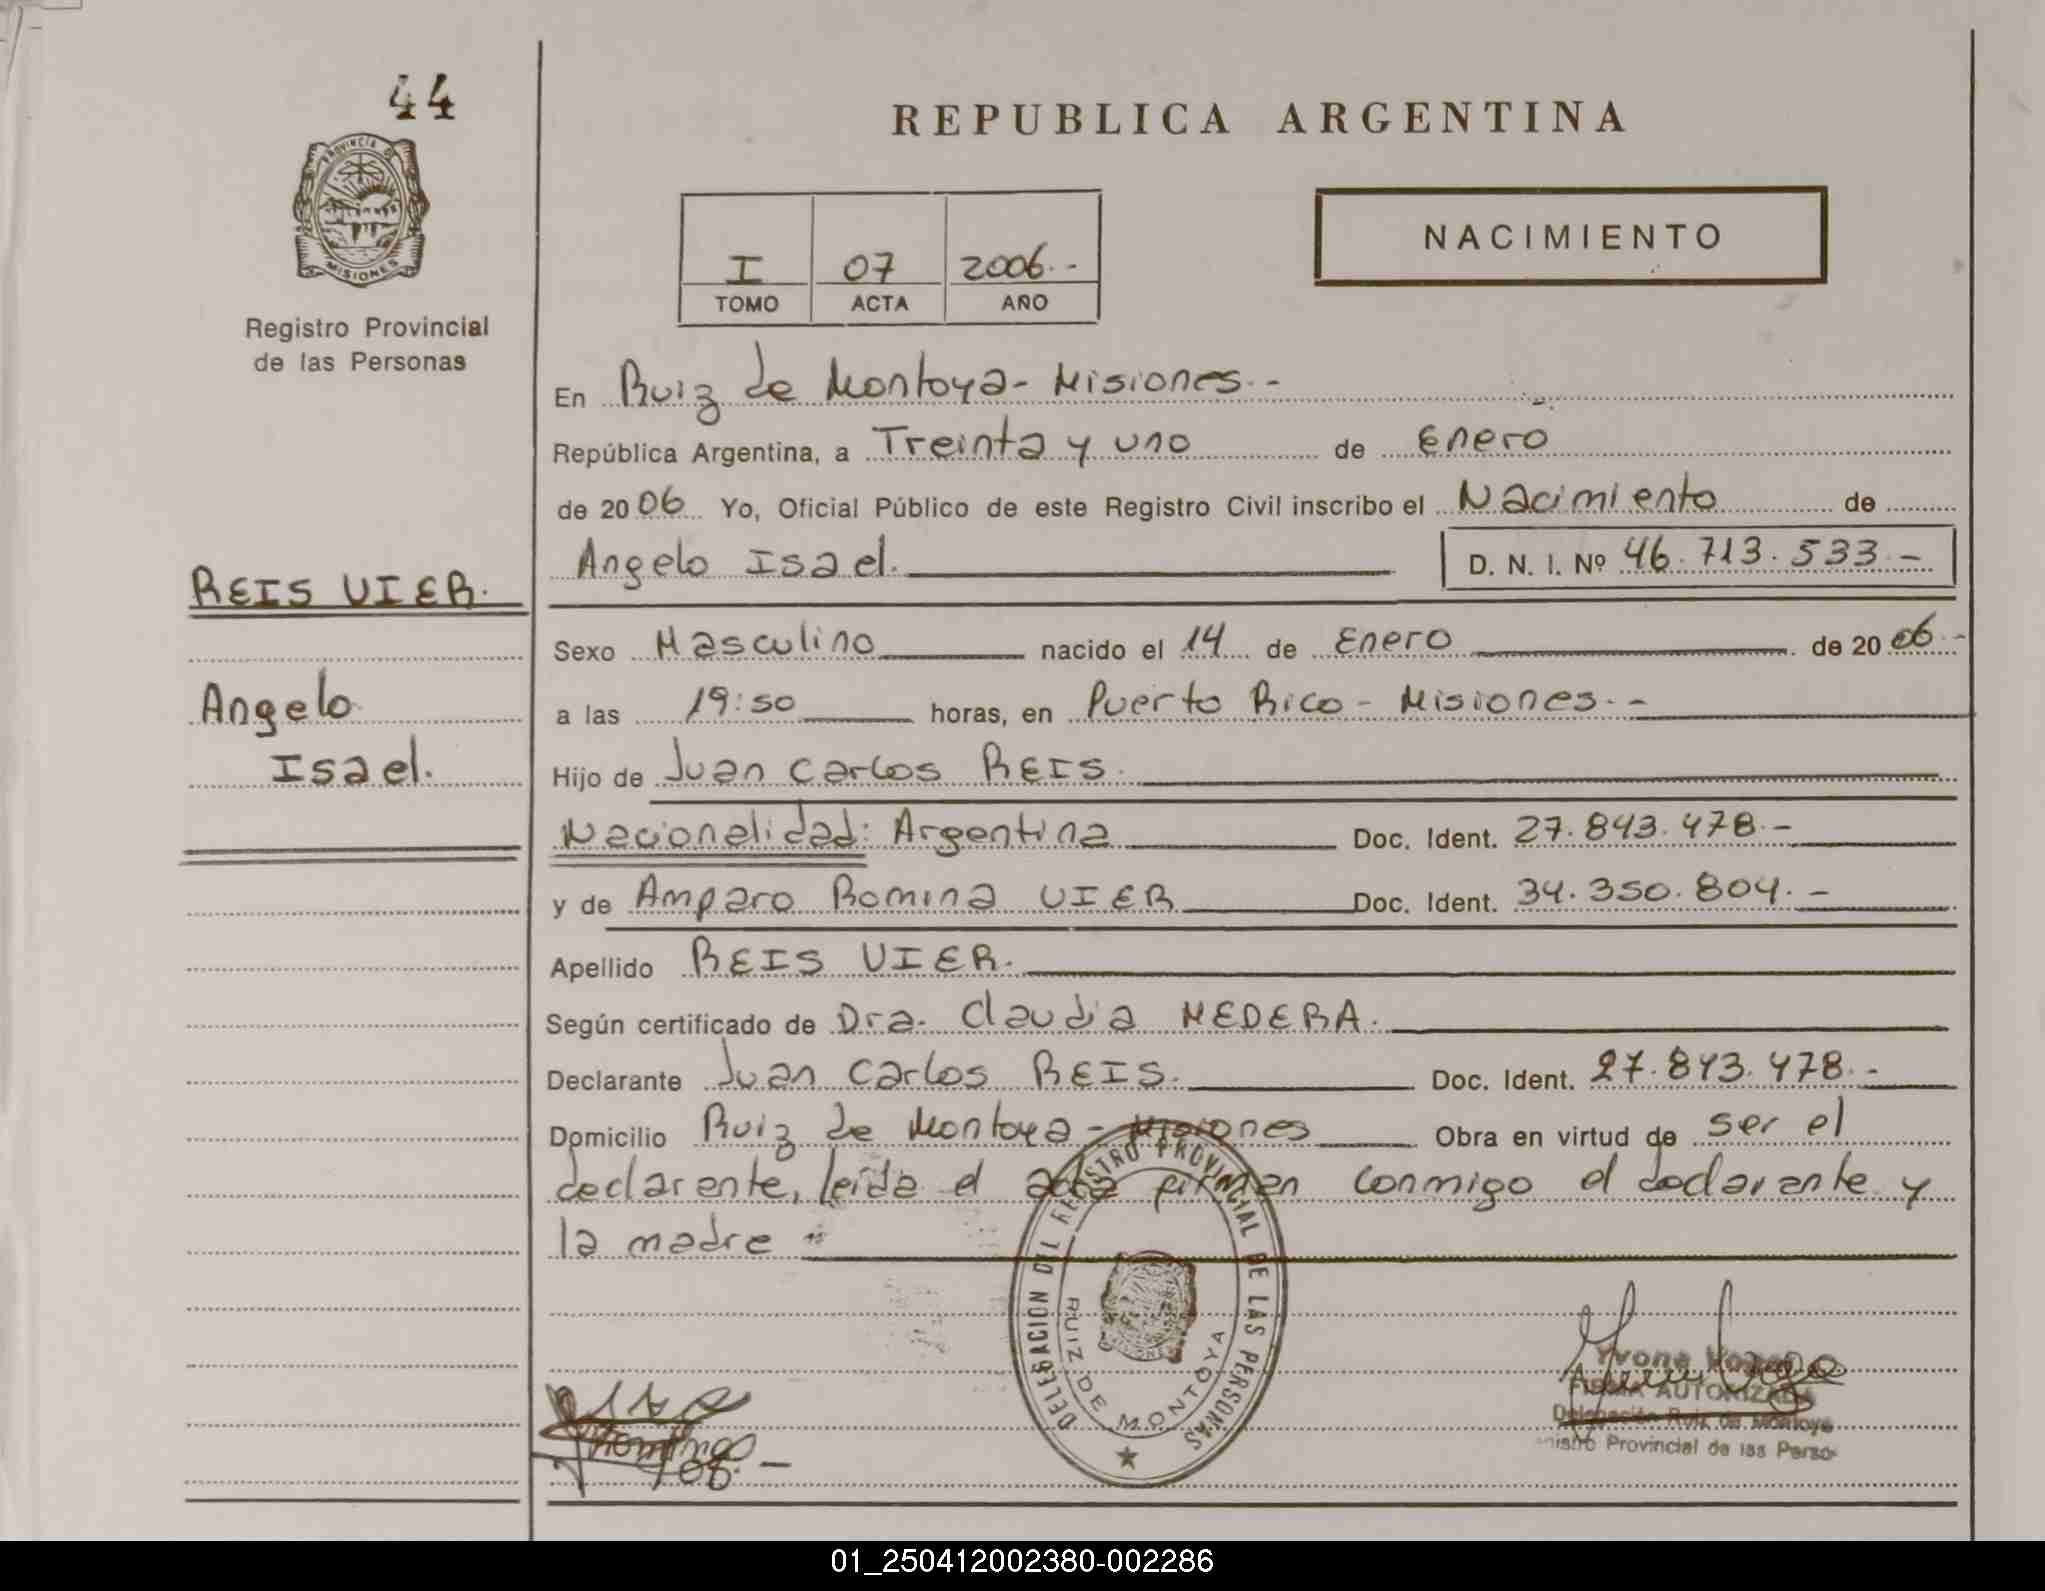 44
PROVINCIA DE
MISIONES
Registro Provincial
de las Personas
REPUBLICA ARGENTINA
I 07 2006.-
TOMO ACTA AÑO
NACIMIENTO
En Ruiz de Montoya - Misiones.-
República Argentina, a Treinta y uno de Enero
de 2006 Yo, Oficial Público de este Registro Civil inscribo el Nacimiento de
Angelo Isael. D. N. I. Nº 46.713.533.-
REIS VIER.
Angelo
Isael.
Sexo Masculino nacido el 14 de Enero de 2006.-
a las 19:50 horas, en Puerto Rico - Misiones.-
Hijo de Juan Carlos REIS.
Nacionalidad: Argentina Doc. Ident. 27.843.478.-
y de Amparo Romina VIER Doc. Ident. 34.350.804.-
Apellido REIS VIER.
Según certificado de Dra. Claudia MEDERA.
Declarante Juan Carlos REIS. Doc. Ident. 27.843.478.-
Domicilio Ruiz de Montoya - Misiones Obra en virtud de ser el
declarante, leida el acta firman conmigo el declarante y
la madre
DELEGACION DEL REGISTRO PROVINCIAL DE LAS PERSONAS
RUIZ DE MONTOYA
Yvone
FIRMA AUTORIZADA
Delegación Ruiz de Montoya
Provincial de las Perso
01_250412002380-002286